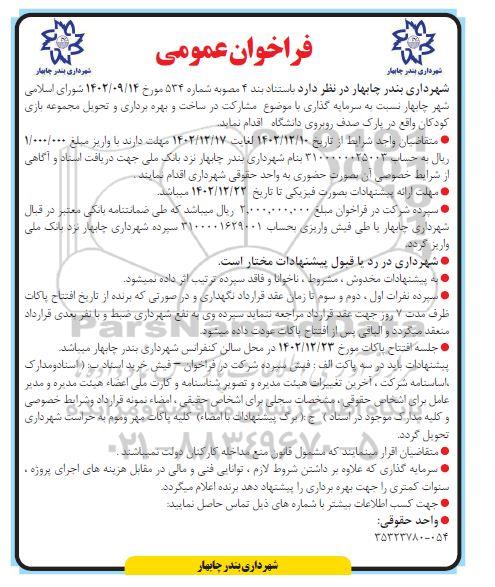 فراخوان عمومی
شهرداری بندر چابهار
شهرداری بندر چابهار
شهرداری بندر چابهار در نظر دارد باستناد بند ۴ مصوبه شماره ۵۳۴ مورخ ۱۴۰۲/۰۹/۱۴ شورای اسلامی
شهر چابهار نسبت به سرمایه گذاری با موضوع مشارکت در ساخت و بهره برداری و تحویل مجموعه بازی
کودکان واقع در پارک صدف روبروی دانشگاه اقدام نماید.
● متقاضیان واجد شرایط از تاریخ ۱۴۰۲/۱۲/۱۰ لغایت ۱۴۰۲/۱۲/۱۷ مهلت دارند با واریز مبلغ ۱/۰۰۰/۰۰۰
ریال به حساب ۳۱۰۰۰۰۰۰۲۵۰۰۳ بنام شهرداری بندر چابهار نزد بانک ملی جهت دریافت اسناد و آگاهی
از شرایط خصوصی آن بصورت حضوری به واحد حقوقی شهرداری اقدام نمایند .
● مهلت ارائه پیشنهادات بصورت فیزیکی تا تاریخ ۱۴۰۲/۱۲/۲۲ میباشد.
● سپرده شرکت در فراخوان مبلغ ۲,۰۰۰,۰۰۰,۰۰۰ ریال میباشد که طی ضمانتنامه بانکی معتبر در قبال
شهرداری چابهار یا طی فیش واریزی بحساب ۳۱۰۰۰۰۱۶۲۹۰۰۱ سپرده شهرداری چابهار نزد بانک ملی
واریز گردد.
● شهرداری در رد یا قبول پیشنهادات مختار است.
● به پیشنهادات مخدوش ، مشروط ، ناخوانا و فاقد سپرده ترتیب اثر داده نمیشود.
● سپرده نفرات اول ، دوم و سوم تا زمان عقد قرارداد نگهداری و در صورتی که برنده از تاریخ افتتاح پاکات
ظرف مدت ۷ روز جهت عقد قرارداد مراجعه ننماید سپرده وی به نفع شهرداری ضبط و با نفر بعدی قرارداد
منعقد میگردد و الباقی پس از افتتاح پاکات عودت داده میشود.
● جلسه افتتاح پاکات مورخ ۱۴۰۲/۱۲/۲۳ در محل سالن کنفرانس شهرداری بندر چابهار میباشد.
پیشنهادات باید در سه پاکت الف : فیش سپرده شرکت در فراخوان – فیش خرید اسناد ب: ( اسنادومدارک
،اساسنامه شرکت ، آخرین تغییرات هیئت مدیره و تصویر شناسنامه و کارت ملی اعضاء هیئت مدیره و مدیر
عامل برای اشخاص حقوقی ، مشخصات سجلی برای اشخاص حقیقی ، امضاء نمونه قرارداد وشرایط خصوصی
و کلیه مدارک موجود در اسناد ) ج :( برگ پیشنهادات با امضاء) کلیه پاکات مهر وموم به حراست شهرداری
تحویل گردد.
● متقاضیان اقرار مینمایند که مشمول قانون منع مداخله کارکنان دولت نمیباشند .
● سرمایه گذاری که علاوه بر داشتن شروط لازم ، توانایی فنی و مالی در مقابل هزینه های اجرای پروژه ،
سنوات کمتری را جهت بهره برداری را پیشنهاد دهد برنده اعلام میگردد.
● جهت کسب اطلاعات بیشتر با شماره های ذیل تماس حاصل نمایید:
● واحد حقوقی:
۳۵۳۲۳۷۸۰-۰۵۴
شهرداری بندر چابهار
۰۲۱-۸۸۳۴۹۶۷۰-۵